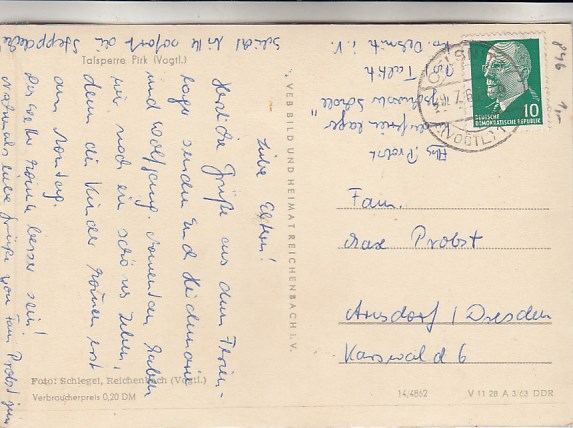 Talsperre Pirk (Vogtl.)
Liebe Eltern!
Herzliche Grüße aus dem Ferien-
lager senden Euch Heidemarie
und Wolfgang. Momentan haben
wir noch ein schönes Leben,
denn die Kinder kommen erst
am Montag.
Das Wetter könnte besser sein!
Nochmals liebe Grüße von Fam. Probst jun.
Schickt bitte sofort die Steppdecke!
Foto: Schlegel, Reichenbach (Vogtl.)
Verbraucherpreis 0,20 DM
VEB BILD UND HEIMAT REICHENBACH I. V.
Abs. Probst
lager
i. V.
OELSNITZ
(VOGTL)
10
DEUTSCHE
DEMOKRATISCHE REPUBLIK
Fam.
Max Probst
Arnsdorf / Dresden
Karswald 6
14/4862
V 11 28 A 3/63 DDR